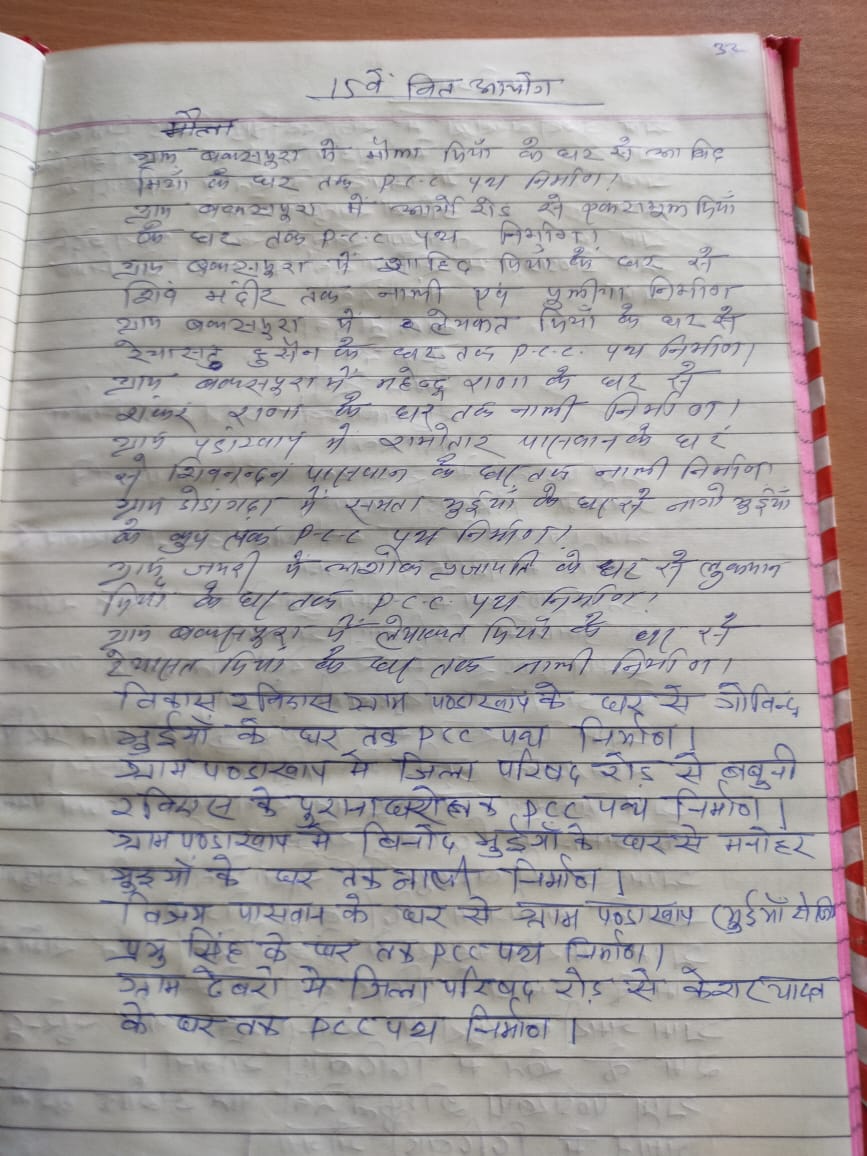 32
15वें वित आयोग
मौला
ग्राम बकसपुरा में मौला मियाँ के घर से आबिद
मियाँ के घर तक P.C.C पथ निर्माण।
ग्राम बकसपुरा में आर्या रोड से एकरामुल मियाँ
के घर तक P-C.C पथ निर्माण।
ग्राम बकसपुरा में शाहिद मियाँ के घर से
शिव मंदीर तक नाली एवं पुलीया निर्माण
ग्राम बकसपुरा में लेयाकत मियाँ के घर से
हुसैन के घर तक P.C.C. पथ निर्माण।
ग्राम बकसपुरा में महेन्द्र राणा के घर से
शंकर राणा के घर तक नाली निर्माण।
ग्राम पंडाखाप में रामोतार पासवान के घर
से शिवनन्दन पासवान के घर तक नाली निर्माण।
ग्राम में समता भुईयाँ के घर से नागो भुईयाँ
के कुप तक P-C-C पथ निर्माण।
ग्राम में अशोक प्रजापति के घर से लुकमान
मियाँ के घर तक P.C.C. पथ निर्माण।
ग्राम बकसपुरा में लेयाकत मियाँ के घर से
रेयासत मियाँ के घर तक नाली निर्माण।
विकास रविदास ग्राम पण्डाखाप के घर से गोविन्द
भुईयाँ के घर तक PCC पथ निर्माण।
ग्राम पण्डाखाप में जिला परिषद रोड से बबुनी
रविदास के पुराना घर तक PCC पथ निर्माण।
ग्राम पण्डाखाप में विनोद भुईयाँ के घर से मनोहर
भुइयाँ के घर तक नाली निर्माण।
विक्रम पासवान के घर से ग्राम पण्डाखाप (भुईयाँ
प्रभु सिंह के घर तक PCC पथ निर्माण।
ग्राम ढेबरो में जिला परिषद रोड से केशर यादव
के घर तक PCC पथ निर्माण।